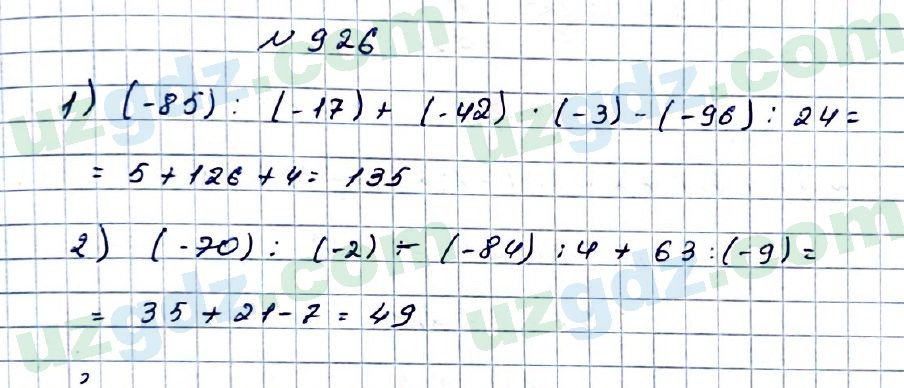 № 926
1) (-85) : (-17) + (-42) · (-3) - (-96) : 24 =
= 5 + 126 + 4 = 135
2) (-70) : (-2) - (-84) : 4 + 63 : (-9) =
= 35 + 21 - 7 = 49
uzgdz.com
uzgdz.com
uzgdz.com
uzgdz.com